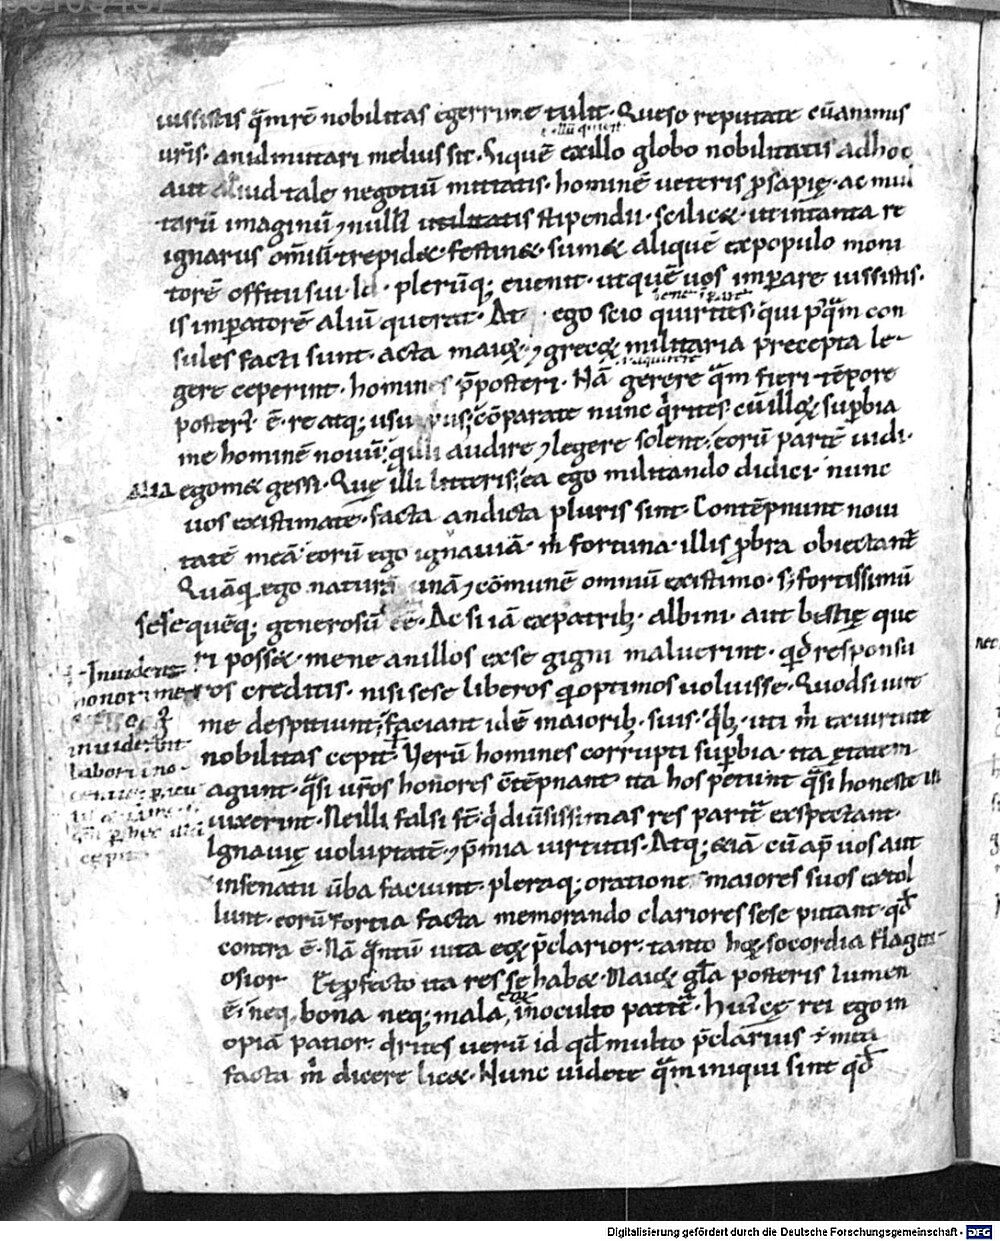 iussistis q̄m rē nobilitas egerrime tulit. Queso reputate cū animis
ur̄is. an id mutari melius sit. Siquē ex illo globo nobilitatis ad hoc
aut aliud tale negotiū mittatis. hominē ueteris p̱sapię. ac mul
tarū imaginū ⁊ nulli utilitatis stipendii. scilic&. ut in tanta re
ignarus om̄iū trepid&. festin&. sum& aliquē ex populo moni
torē offitii sui. Id plerūq; euenit. ut quē uos imp̱are iussistis.
is imp̱atorē aliū querat. At ego scio quirites. qui p̓q̄m con
sules facti sunt. acta maioꝝ. ⁊ grecoꝝ militaria p̄cepta le-
gere ceperint. homines p̄posteri. Nā gerere q̄m fieri tēpore
posteri᷒ ē. re atq; usu pri᷒; Cōparate nunc q̓rites. cū illoꝝ sup̱bia
me hominē nouū. q̄ illi audire ⁊ legere solent. eorū partē uidi.
alia egom& gessi. Quę illi litteris. ea ego militando didici. nunc
uos existimate. facta an dicta pluris sint. Contēpnunt noui
tatē meā. eorū ego ignauiā. m̓ fortuna. illis p̱bra obiectant᷒
Quāq̄ ego naturā unā ⁊ cōmunē omniū existimo. s; fortissimū
sese quēq; generosū eē. Ac si iā ex patrib; albini. aut bestię que
ri poss&. mene an illos ex se gigni maluerint. qd̄ responsu
ros creditis. nisi sese liberos q̄ optimos uoluisse. Quod si iure
me despitiunt. faciant idē maiorib; suis. q̓b; uti m̓ ex uirtute
nobilitas cepit. Verū homines corrupti sup̱bia. ita ętatem
agunt. q̄si ur̄os honores cōtēpnant. ita hos petunt q̄si honeste
uixerint. Ne illi falsi st̄. q̓ diūsissimas res parit̓ exspectant.
Ignauię uoluptatē. ⁊ p̄mia uirtutis. Atq; &iā cū ap̄ uos aut
in senatu ūba faciunt. pleraq; oratione maiores suos extol
lunt. eorū fortia facta memorando clariores sese putant. qd̄
contra ē. Nā q̄ntū uita eoꝝ p̄clarior. tanto hoꝝ socordia flagiti-
osior Et p̱fecto ita res se hab&. Maioꝝ gl̄a posteris lumen
ē. neq; bona neq; mala eoꝝ in oculto patit᷒. Hui᷒ce rei ego in
opiā patior. q̓rites uerū id qd̄ multo p̄clarius ē mea
facta m̓ dicere lic&. Nunc uidete q̄m iniqui sint qd̄
Inuident
honori meo
inuideant
labori inno-
centie p̱icu
lis
cepi
Digitalisierung gefördert durch die Deutsche Forschungsgemeinschaft - DFG